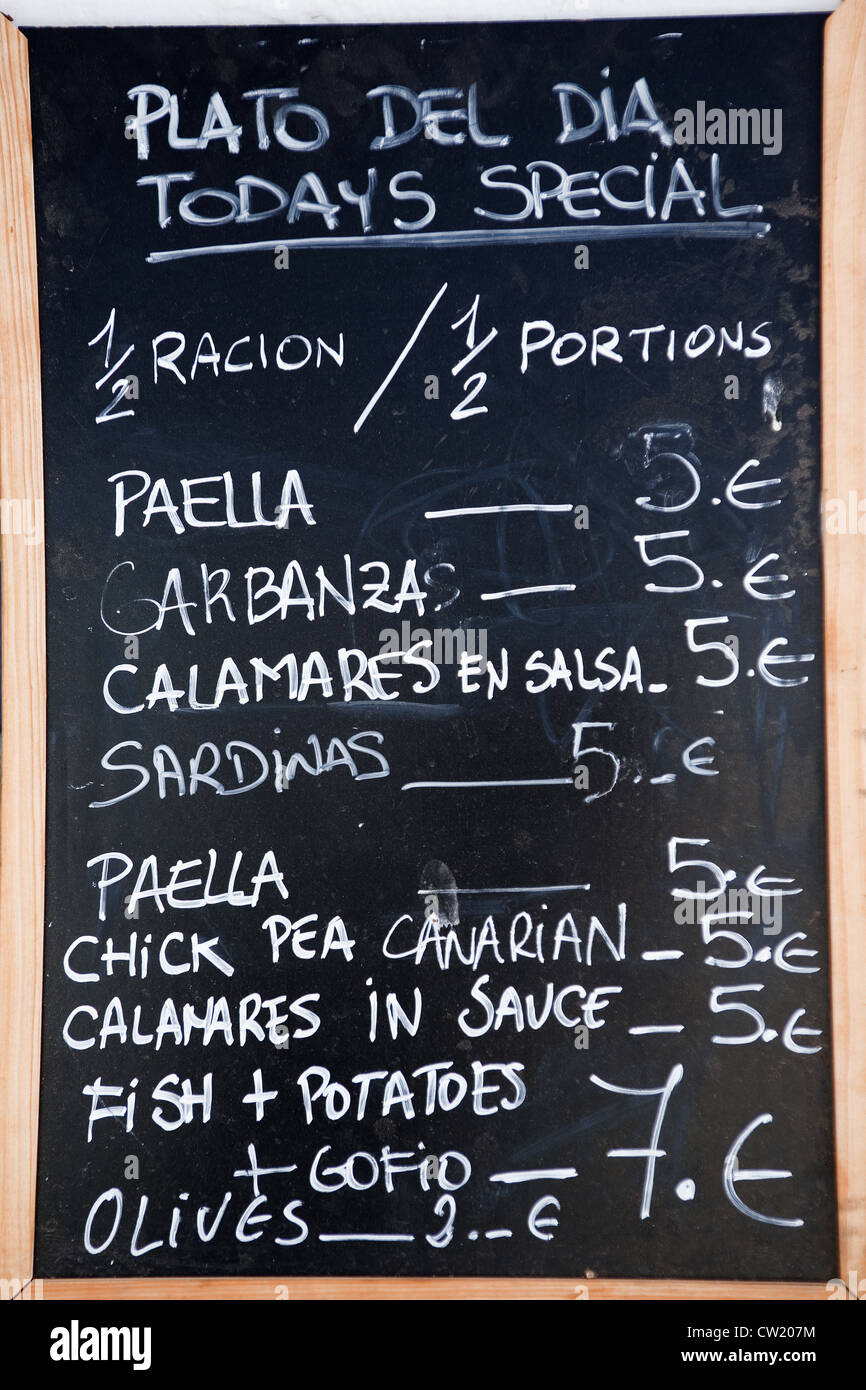 PLATO DEL DIA
TODAYS SPECIAL
1/2 RACION / 1/2 PORTIONS
PAELLA — 5.€
GARBANZAS — 5.€
CALAMARES EN SALSA - 5.€
SARDINAS — 5.-€
PAELLA — 5.€
CHICK PEA CANARIAN - 5.€
CALAMARES IN SAUCE - 5.€
FISH + POTATOES
+ GOFIO — 7.€
OLIVES — ..€
alamy
Image ID: CW207M
www.alamy.com